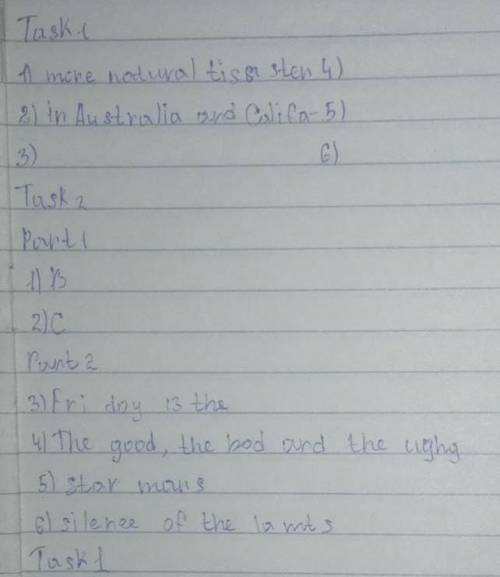 Task 1
1) more natural tisa sten 4)
2) in Australia and Califa- 5)
3) 6)
Task 2
Part 1
1) B
2) C
Part 2
3) Fri day 13 the
4) The good, the bad and the ughy
5) star mous
6) silence of the lamts
Task 1